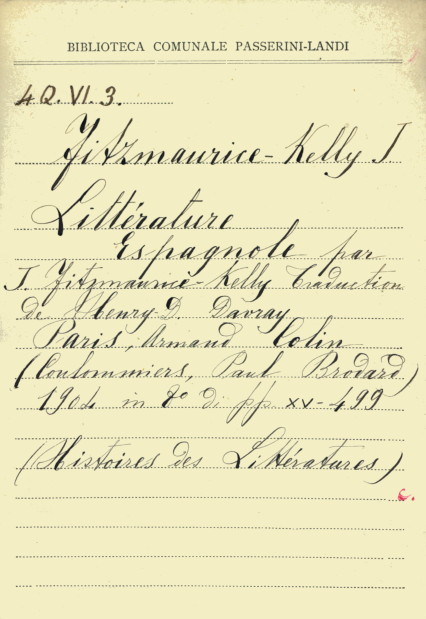 BIBLIOTECA COMUNALE PASSERINI-LANDI
4Q.VI.3.
Fitzmaurice-Kelly J
Littérature
Espagnole par
J. Fitzmaurice-Kelly Traduction
de Henry-D. Davray
Paris, Armand Colin
(Coulommiers, Paul Brodard)
1904 in 8° di pp. XV-499
(Histoires des Littératures)
c.